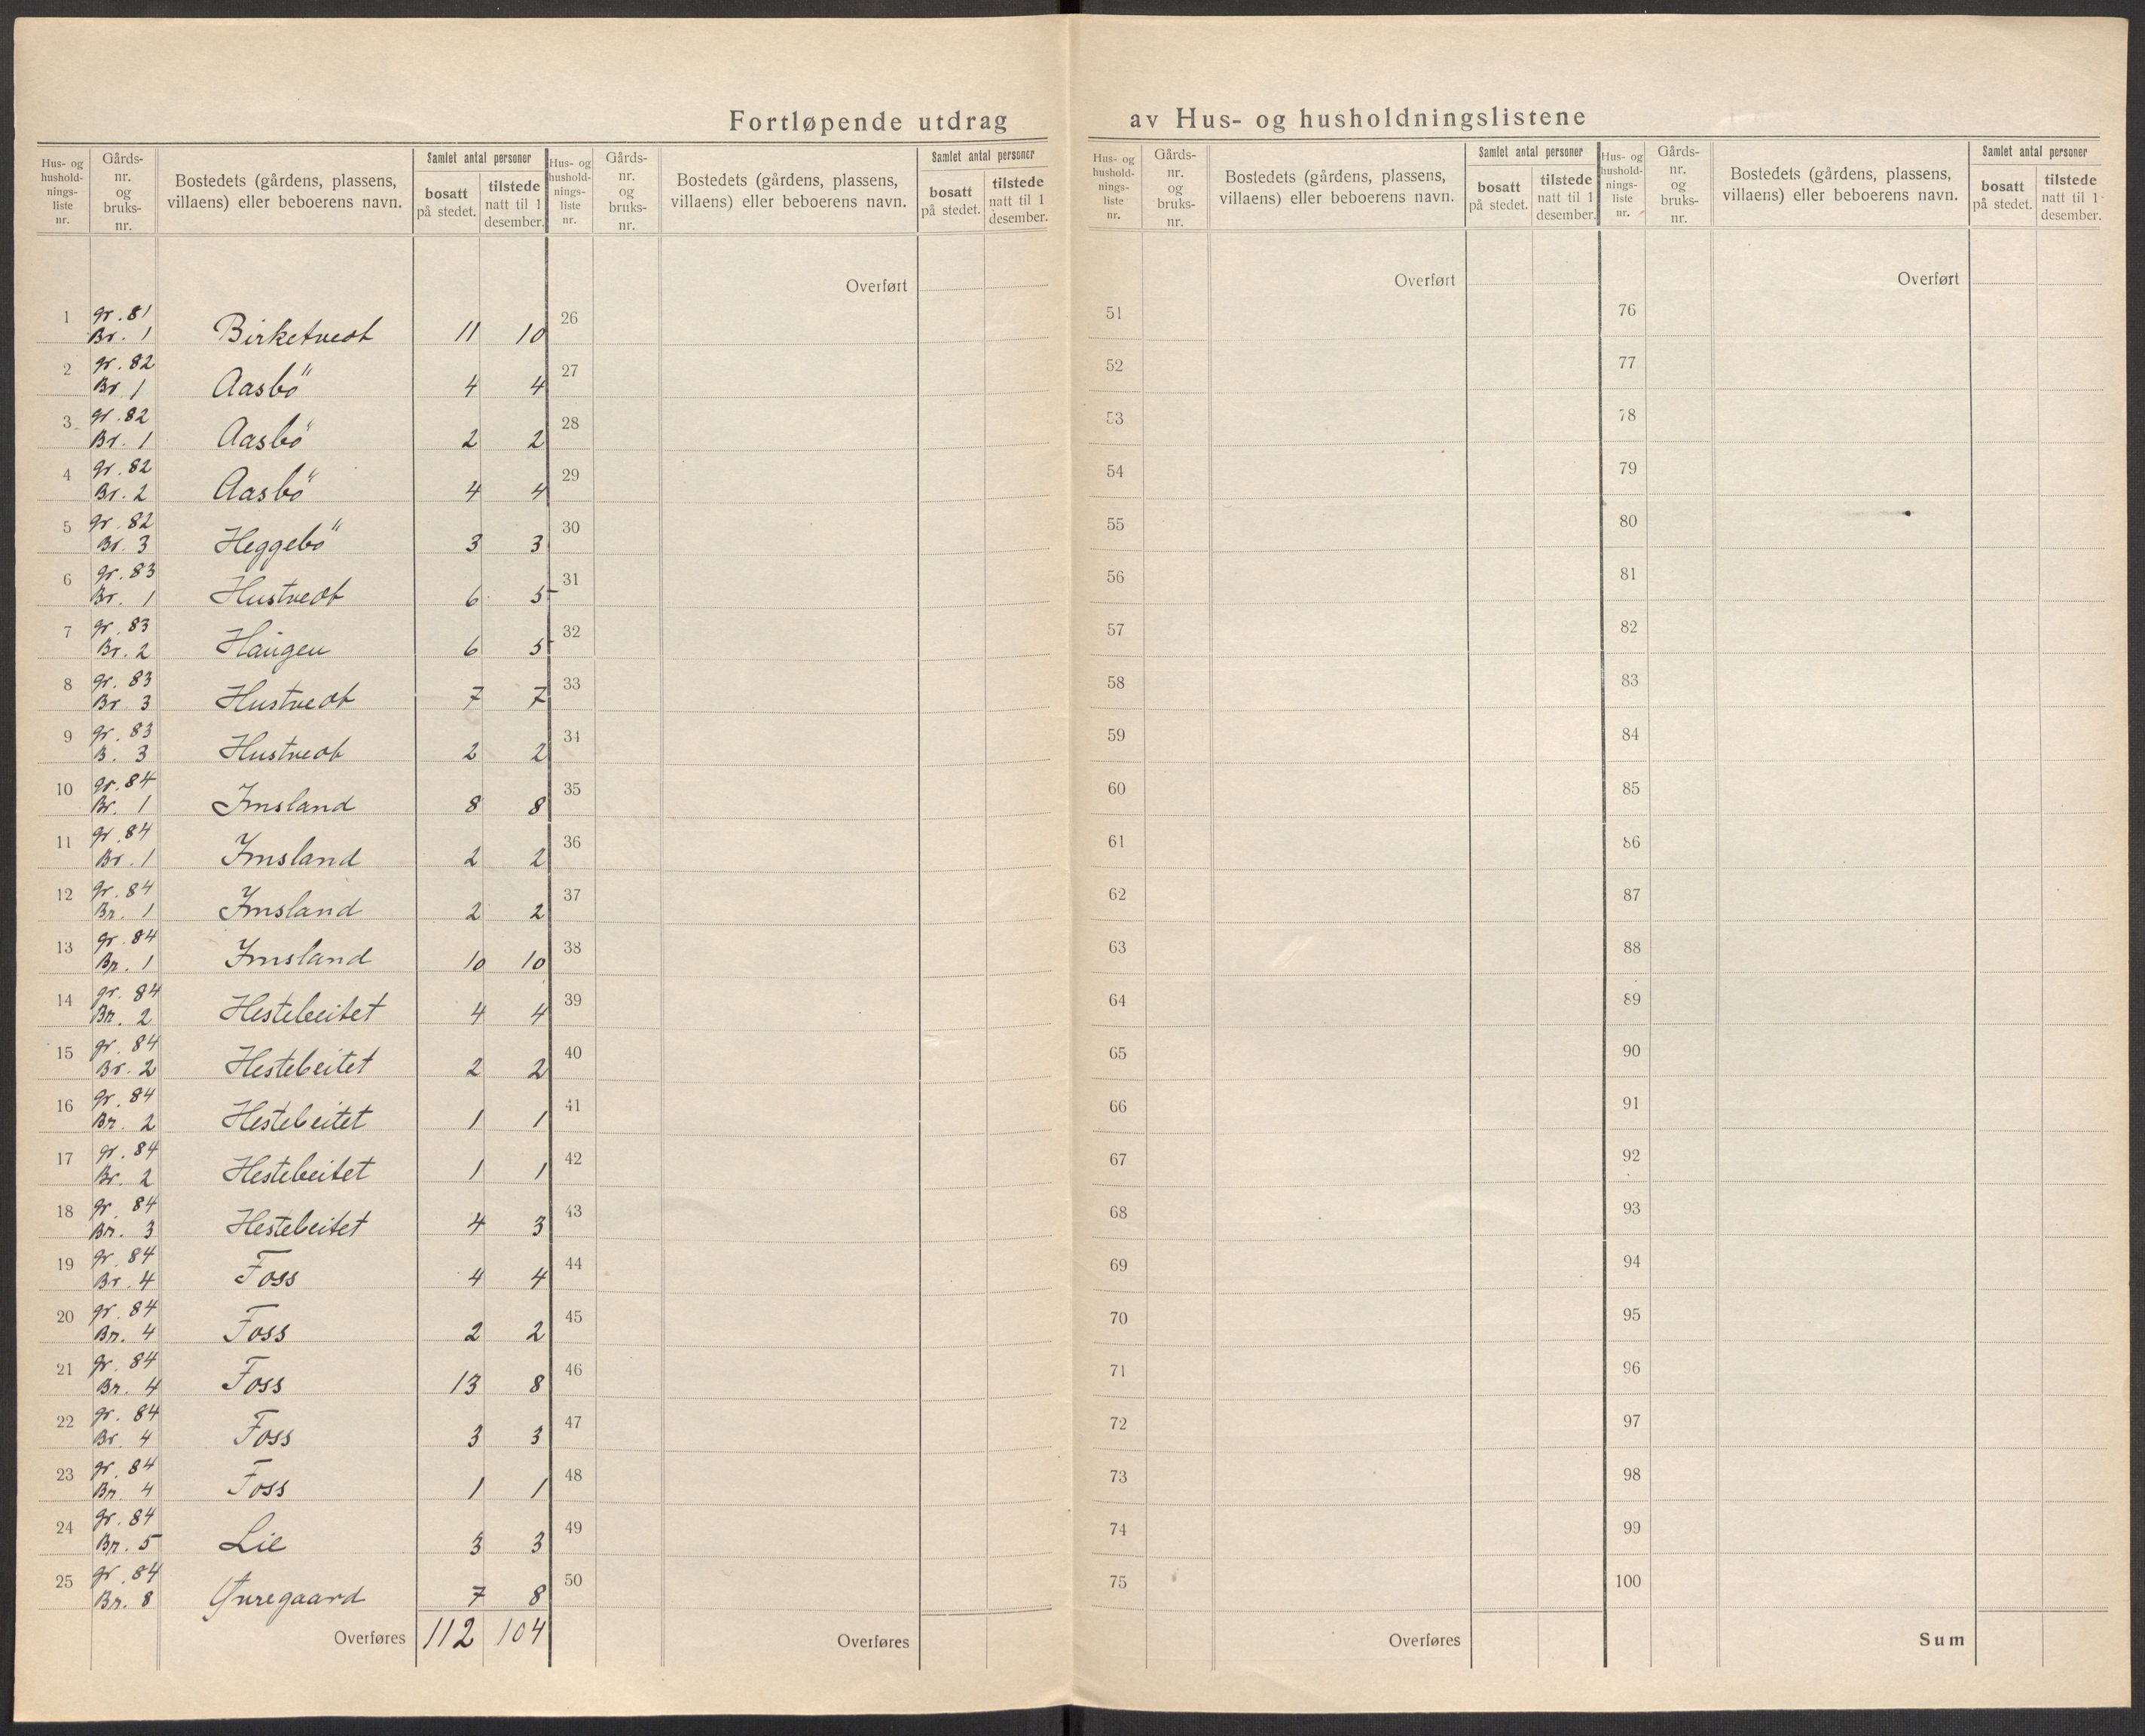 Fortløpende utdrag av Hus- og husholdningslistene
Hus- og hushold- nings- liste nr. Gårds- nr. og bruks- nr. Bostedets (gårdens, plassens, villaens) eller beboerens navn. Samlet antal personer bosatt på stedet. tilstede natt til 1 desember.
Hus- og hushold- nings- liste nr. Gårds- nr. og bruks- nr. Bostedets (gårdens, plassens, villaens) eller beboerens navn. Samlet antal personer bosatt på stedet. tilstede natt til 1 desember.
Hus- og hushold- nings- liste nr. Gårds- nr. og bruks- nr. Bostedets (gårdens, plassens, villaens) eller beboerens navn. Samlet antal personer bosatt på stedet. tilstede natt til 1 desember.
Hus- og hushold- nings- liste nr. Gårds- nr. og bruks- nr. Bostedets (gårdens, plassens, villaens) eller beboerens navn. Samlet antal personer bosatt på stedet. tilstede natt til 1 desember.
Overført Overført Overført
1 gr. 81 Br. 1 Birketvedt 11 10 26 51 76
2 gr. 82 Br 1 Aasbö 4 4 27 52 77
3 gr. 82 Br. 1 Aasbö 2 2 28 53 78
4 gr. 82 Br. 2 Aasbö 4 4 29 54 79
5 gr. 82 Br. 3 Heggebö 3 3 30 55 80
6 gr. 83 Br. 1 Hustvedt 6 5 31 56 81
7 gr. 83 Br. 2 Haugen 6 5 32 57 82
8 gr. 83 Br 3 Hustvedt 7 7 33 58 83
9 gr. 83 B. 3 Hustvedt 2 2 34 59 84
10 gr. 84 Br. 1 Imsland 8 8 35 60 85
11 gr. 84 Br. 1 Imsland 2 2 36 61 86
12 gr. 84 Br. 1 Imsland 2 2 37 62 87
13 gr. 84 Br. 1 Imsland 10 10 38 63 88
14 gr. 84 Br. 2 Hestebeitet 4 4 39 64 89
15 gr. 84 Br. 2 Hestebeitet 2 2 40 65 90
16 gr. 84 Br. 2 Hestebeitet 1 1 41 66 91
17 gr. 84 Br. 2 Hestebeitet 1 1 42 67 92
18 gr. 84 Br. 3 Hestebeitet 4 3 43 68 93
19 gr. 84 Br. 4 Foss 4 4 44 69 94
20 gr. 84 Br. 4 Foss 2 2 45 70 95
21 gr. 84 Br. 4 Foss 13 8 46 71 96
22 gr. 84 Br. 4 Foss 3 3 47 72 97
23 gr. 84 Br. 4 Foss 1 1 48 73 98
24 gr. 84 Br. 5 Lie 3 3 49 74 99
25 gr. 84 Br. 8 7 8 50 75 100
Overføres 112 104 Overføres Overføres Sum